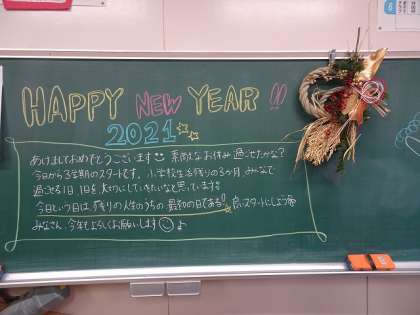 HAPPY NEW YEAR!!
2021
あけましておめでとうございます 素敵なお休み過ごせたかな?
今日から3学期のスタートです。小学校生活残りの3か月、みんなで
過ごせる1日1日を大切にしていきたいなと思っています!!
今日という日は、残りの人生のうちの最初の日である!! 良いスタートにしよう
みなさん、今年もよろしくお願いします